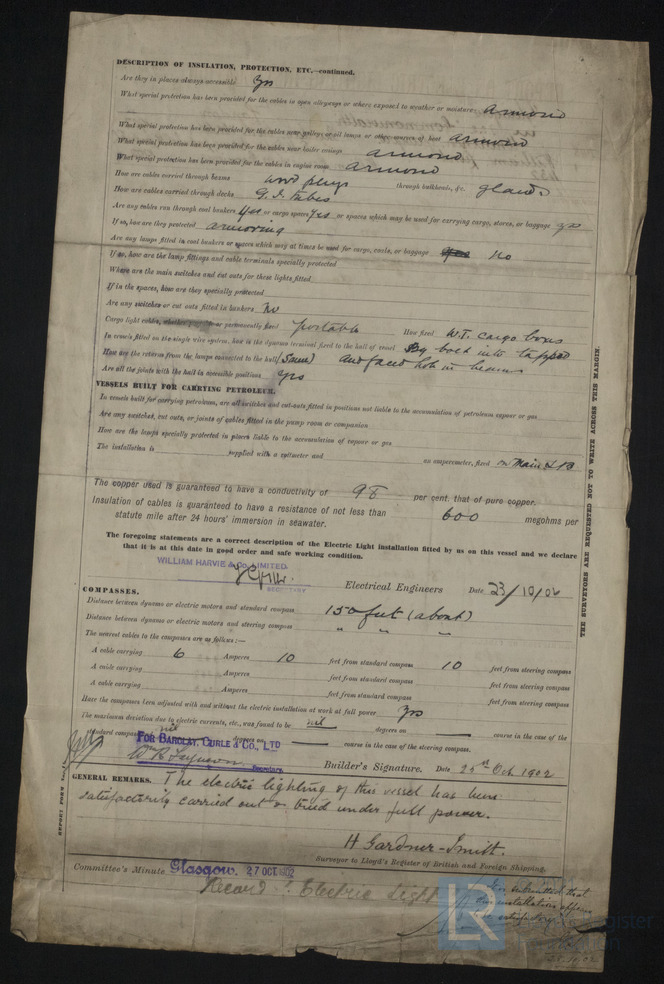 DESCRIPTION OF INSULATION, PROTECTION, ETC.—continued.
Are they in places always accessible yes
What special protection has been provided for the cables in open alleyways or where exposed to weather or moisture armored
What special protection has been provided for the cables near galleys or oil lamps or other sources of heat armored
What special protection has been provided for the cables near boiler casings armored
What special protection has been provided for the cables in engine room armored
How are cables carried through beams wood plugs through bulkheads, &c. glands
How are cables carried through decks G. I. tubes
Are any cables run through coal bunkers yes or cargo spaces yes or spaces which may be used for carrying cargo, stores, or baggage yes
If so, how are they protected armoring
Are any lamps fitted in coal bunkers or spaces which may at times be used for cargo, coals, or baggage no
If so, how are the lamp fittings and cable terminals specially protected
Where are the main switches and cut outs for these lights fitted
If in the spaces, how are they specially protected
Are any switches or cut outs fitted in bunkers No
Cargo light cables, whether portable or permanently fixed portable How fixed W.T. cargo boxes
In vessels fitted on the single wire system, how is the dynamo terminal fixed to the hull of vessel By bolt into tapped
How are the returns from the lamps connected to the hull (Same) and faced hole in beams
Are all the joints with the hull in accessible positions yes
VESSELS BUILT FOR CARRYING PETROLEUM.
In vessels built for carrying petroleum, are all switches and cut-outs fitted in positions not liable to the accumulation of petroleum vapour or gas
Are any switches, cut outs, or joints of cables fitted in the pump room or companion
How are the lamps specially protected in places liable to the accumulation of vapour or gas
The installation is supplied with a voltmeter and an amperemeter, fixed on Main S.B
The copper used is guaranteed to have a conductivity of 98 per cent. that of pure copper.
Insulation of cables is guaranteed to have a resistance of not less than 600 megohms per
statute mile after 24 hours' immersion in seawater.
The foregoing statements are a correct description of the Electric Light installation fitted by us on this vessel and we declare
that it is at this date in good order and safe working condition.
WILLIAM HARVIE & Co. LIMITED.
SECRETARY
Electrical Engineers Date 23/10/02
COMPASSES.
Distance between dynamo or electric motors and standard compass 150 feet (about)
Distance between dynamo or electric motors and steering compass " " "
The nearest cables to the compasses are as follows:—
A cable carrying 6 Amperes 10 feet from standard compass 10 feet from steering compass
A cable carrying Amperes feet from standard compass feet from steering compass
A cable carrying Amperes feet from standard compass feet from steering compass
Have the compasses been adjusted with and without the electric installation at work at full power yes
The maximum deviation due to electric currents, etc., was found to be nil degrees on course in the case of the
standard compass nil degrees on course in the case of the steering compass.
FOR BARCLAY, CURLE & CO., LTD
Secretary.
Builder's Signature. Date 25th Oct. 1902
GENERAL REMARKS. The electric lighting of this vessel has been
satisfactorily carried out & tried under full power.
H Gardner-Smith.
Surveyor to Lloyd's Register of British and Foreign Shipping.
Committee's Minute Glasgow. 27 OCT 1902
Record: Electric Light
It is submitted that
this installation appears
satisfactory
THE SURVEYORS ARE REQUESTED NOT TO WRITE ACROSS THIS MARGIN.
REPORT FORM
LR
Lloyd's Register
Foundation